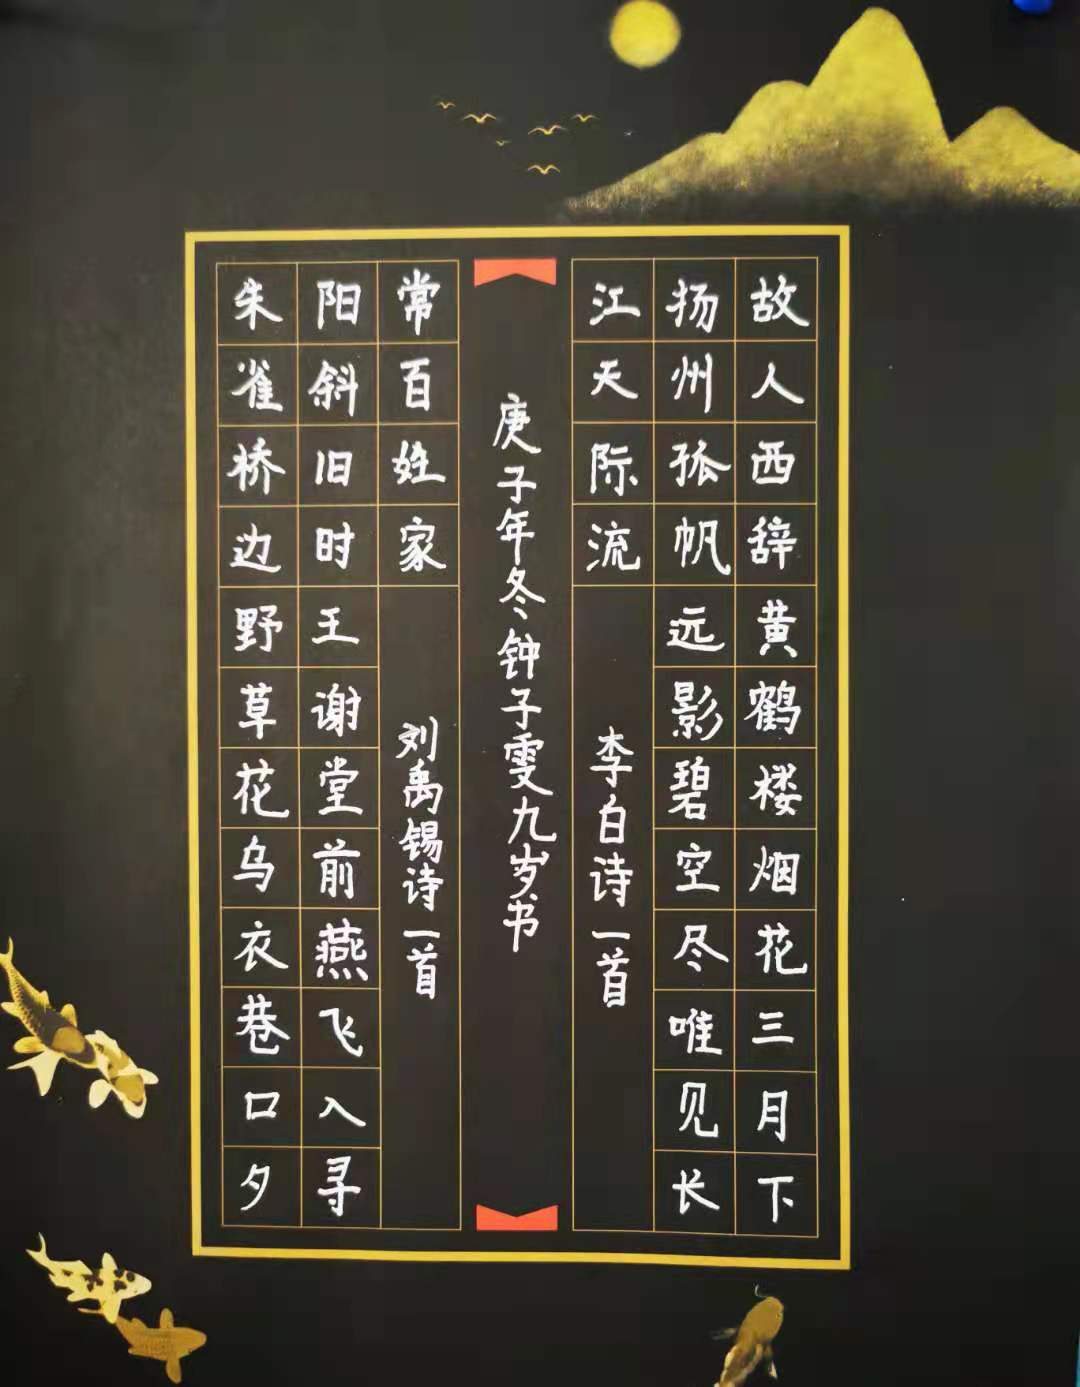 故人西辞黄鹤楼烟花三月下
扬州孤帆远影碧空尽唯见长
江天际流
李白诗一首
朱雀桥边野草花乌衣巷口夕
阳斜旧时王谢堂前燕飞入寻
常百姓家
刘禹锡诗一首
庚子年冬钟子雯九岁书